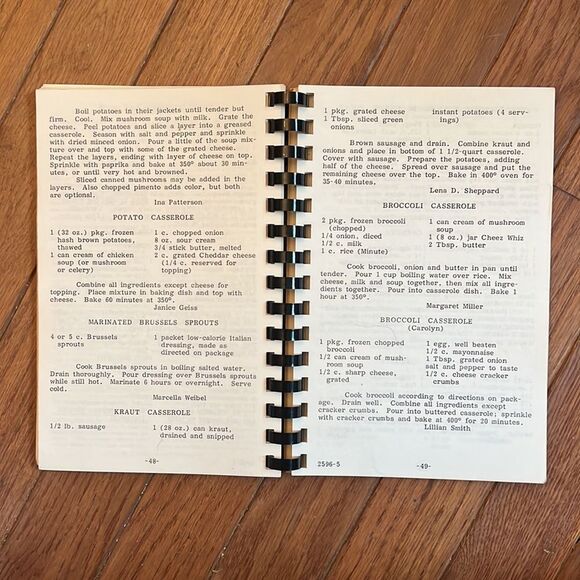 Boil potatoes in their jackets until tender but
firm. Cool. Mix mushroom soup with milk. Grate the
cheese. Peel potatoes and slice a layer into a greased
casserole. Season with salt and pepper and sprinkle
with dried minced onion. Pour a little of the soup mix-
ture over and top with some of the grated cheese.
Repeat the layers, ending with layer of cheese on top.
Sprinkle with paprika and bake at 350° about 30 min-
utes, or until very hot and browned.
Sliced canned mushrooms may be added in the
layers. Also chopped pimento adds color, but both
are optional.
Ina Patterson
POTATO CASSEROLE
1 (32 oz.) pkg. frozen
hash brown potatoes,
thawed
1 can cream of chicken
soup (or mushroom
or celery)
1 c. chopped onion
8 oz. sour cream
3/4 stick butter, melted
2 c. grated Cheddar cheese
(1/4 c. reserved for
topping)
Combine all ingredients except cheese for
topping. Place mixture in baking dish and top with
cheese. Bake 60 minutes at 350°.
Janice Geiss
MARINATED BRUSSELS SPROUTS
4 or 5 c. Brussels
sprouts
1 packet low-calorie Italian
dressing, made as
directed on package
Cook Brussels sprouts in boiling salted water.
Drain thoroughly. Pour dressing over Brussels sprouts
while still hot. Marinate 6 hours or overnight. Serve
cold.
Marcella Weibel
KRAUT CASSEROLE
1/2 lb. sausage
1 (28 oz.) can kraut,
drained and snipped
-48-
1 pkg. grated cheese
1 Tbsp. sliced green
onions
instant potatoes (4 serv-
ings)
Brown sausage and drain. Combine kraut and
onions and place in bottom of 1 1/2-quart casserole.
Cover with sausage. Prepare the potatoes, adding
half of the cheese. Spread over sausage and put the
remaining cheese over the top. Bake in 400° oven for
35-40 minutes.
Lena D. Sheppard
BROCCOLI CASSEROLE
2 pkg. frozen broccoli
(chopped)
1/4 onion, diced
1/2 c. milk
1 c. rice (Minute)
1 can cream of mushroom
soup
1 (8 oz.) jar Cheez Whiz
2 Tbsp. butter
Cook broccoli, onion and butter in pan until
tender. Pour 1 cup boiling water over rice. Mix
cheese, milk and soup together, then mix all ingre-
dients together. Pour into casserole dish. Bake 1
hour at 350°.
Margaret Miller
BROCCOLI CASSEROLE
(Carolyn)
1 pkg. frozen chopped
broccoli
1/2 can cream of mush-
room soup
1/2 c. sharp cheese,
grated
1 egg, well beaten
1/2 c. mayonnaise
1 Tbsp. grated onion
salt and pepper to taste
1/2 c. cheese cracker
crumbs
Cook broccoli according to directions on pack-
age. Drain well. Combine all ingredients except
cracker crumbs. Pour into buttered casserole; sprinkle
with cracker crumbs and bake at 400° for 20 minutes.
Lillian Smith
2596-5
-49-